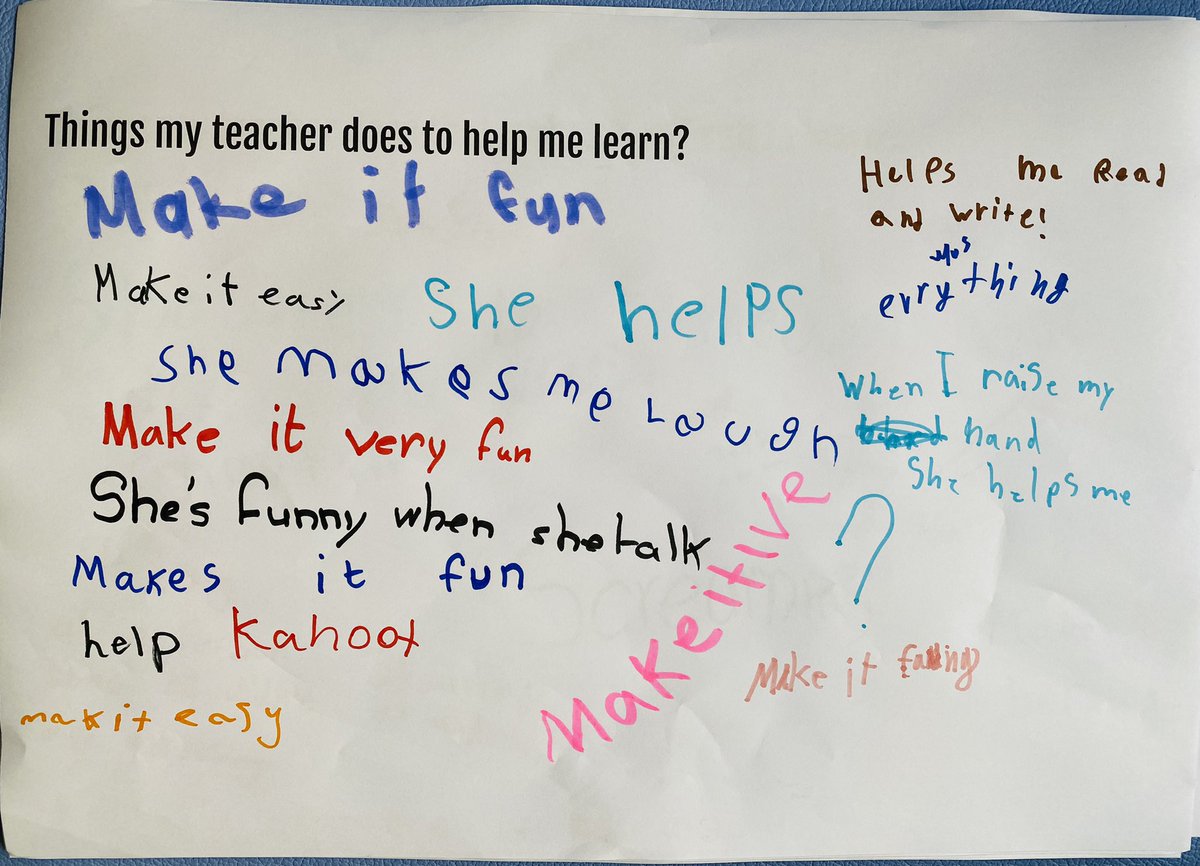 Things my teacher does to help me learn?
Make it fun
Helps me Read
and write!
Make it easy
She helps
evrything
She makes me Laugh
When I raise my
hand
She helps me
Make it very fun
She's funny when she talk
?
Makes it fun
help
Kahoot
Make it IVe
Make it
mak it easy